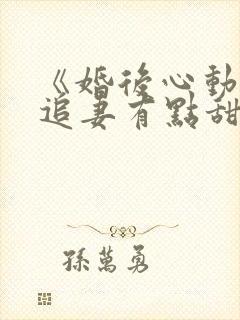 《婚後心動
追妻有點甜
孫萬勇